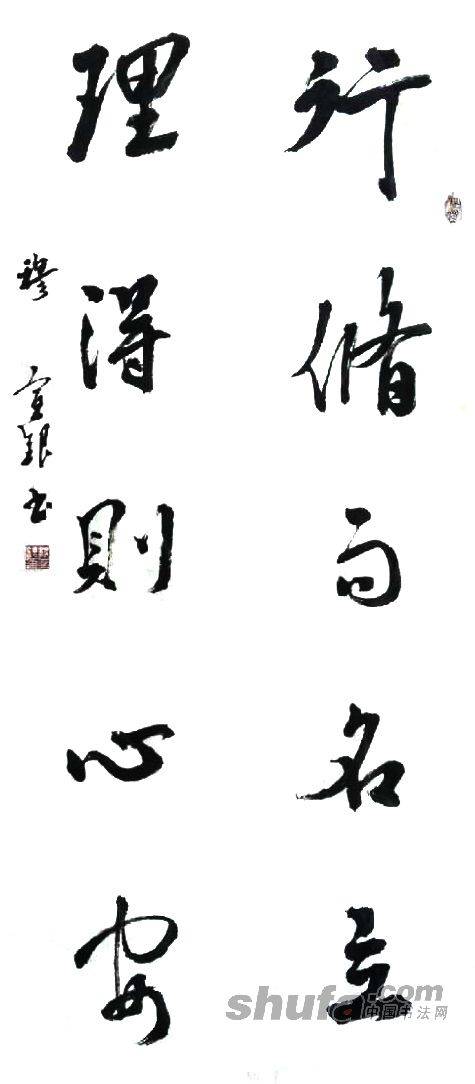 行脩而名立
理得則心安
穆宣銀书
shufa.com
中国书法网